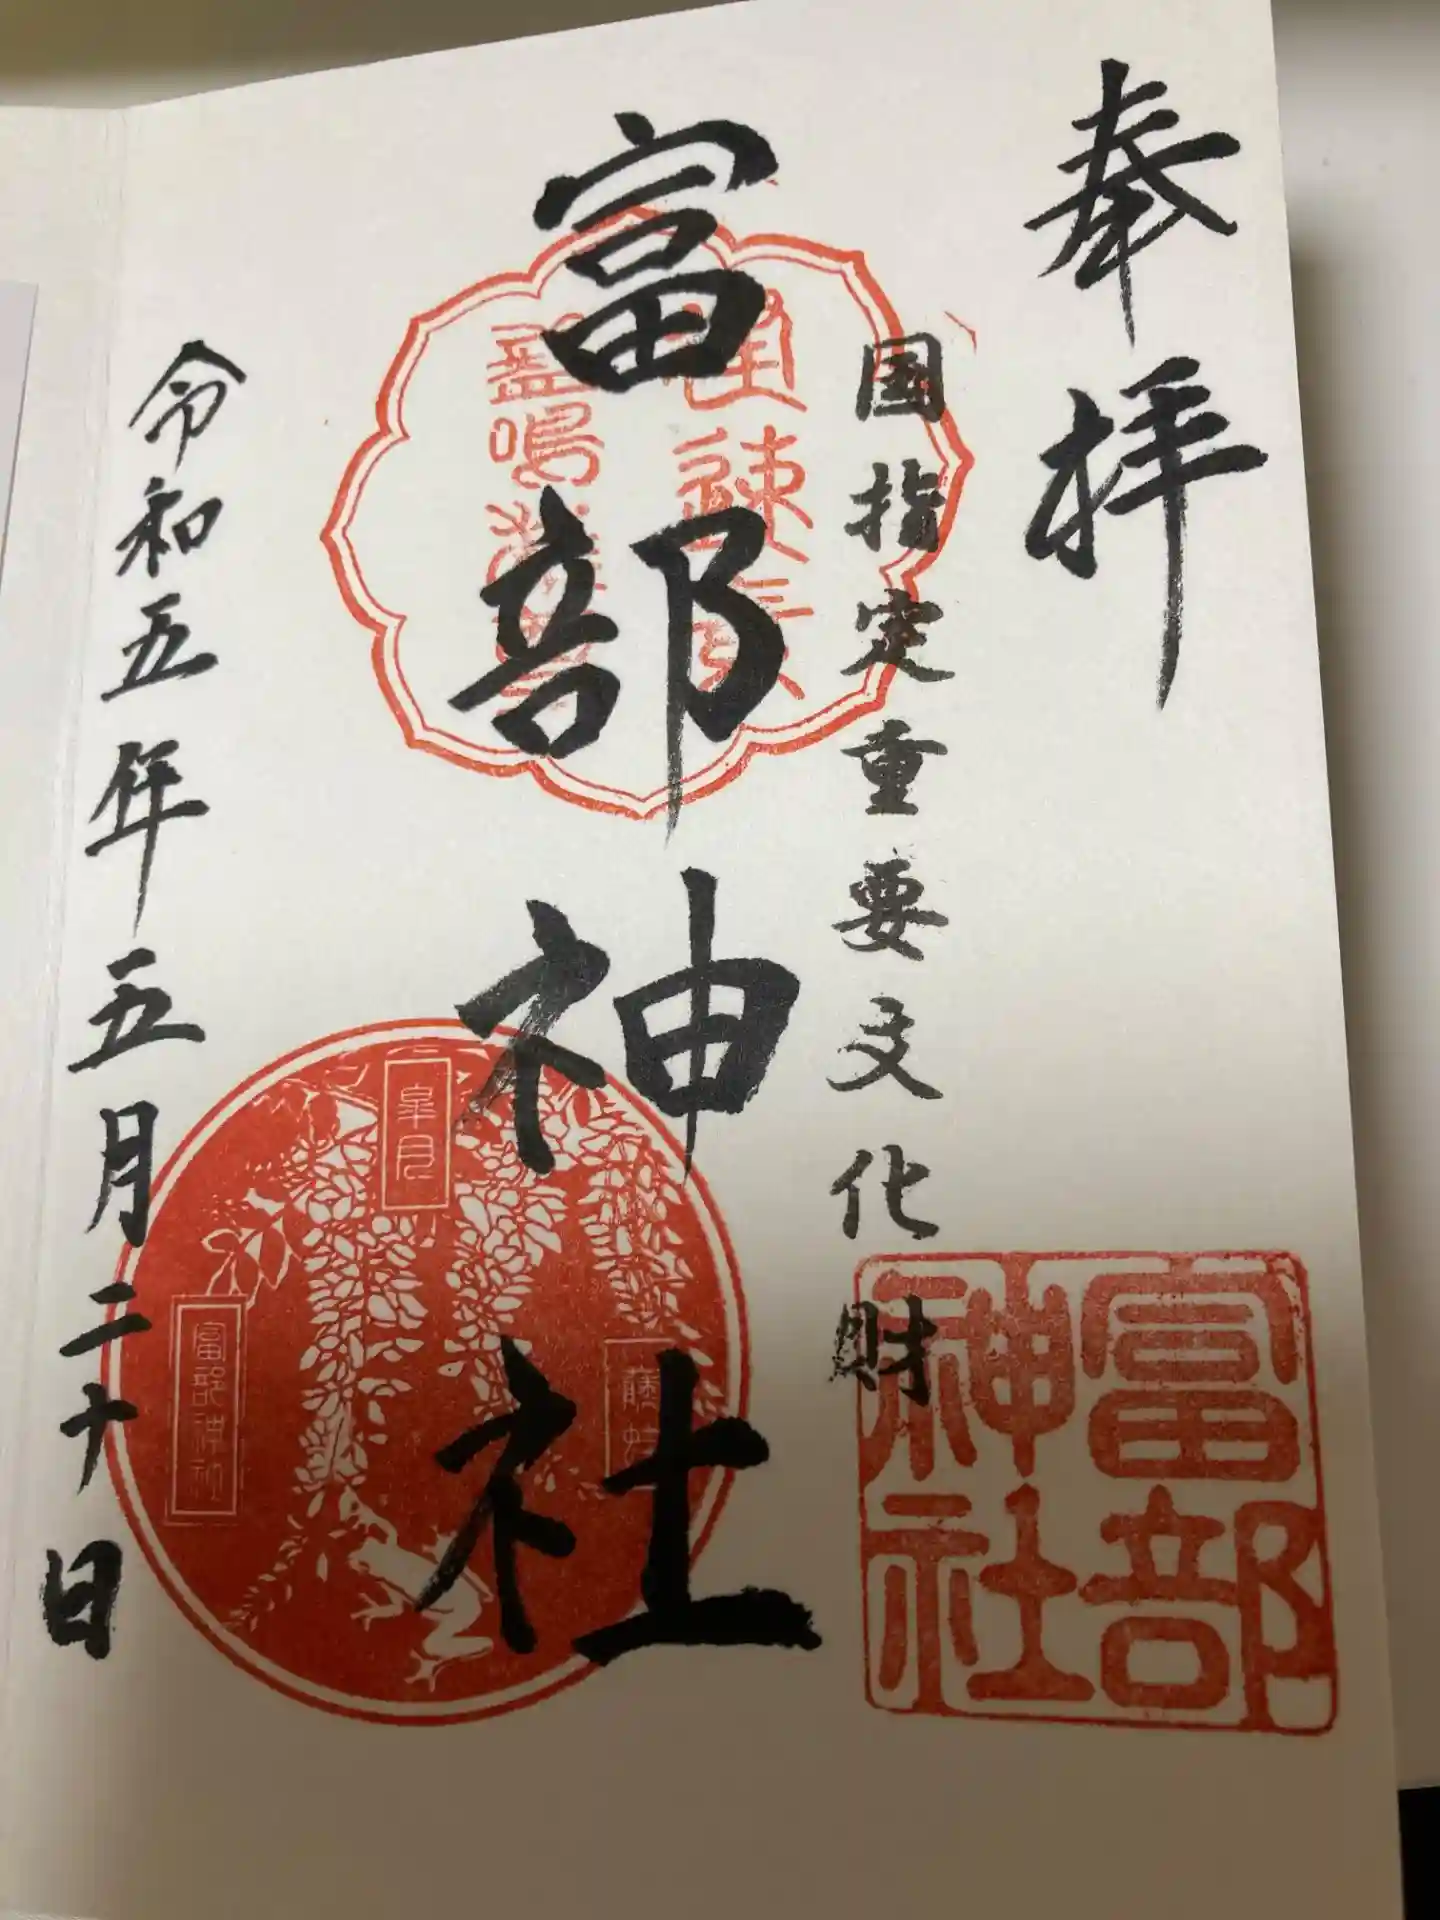 奉拝
国指定重要文化財
富部神社
富部
神社
皐月
藤
富部神社
令和五年五月二十日